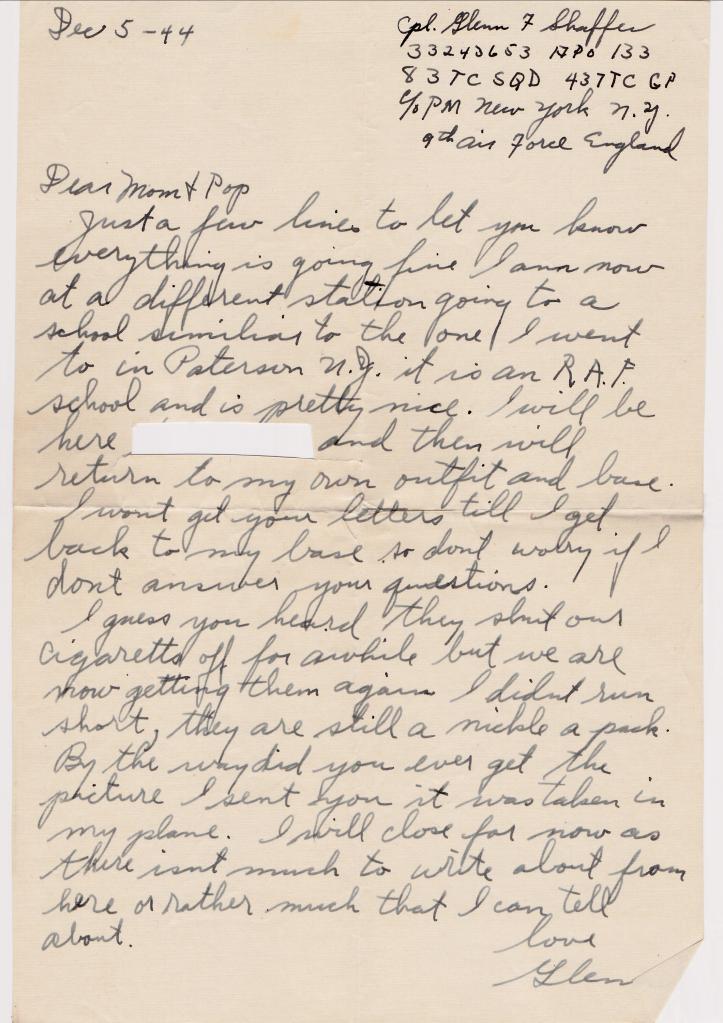 Dec 5-44
Cpl. Glenn F Shaffer
33243653 APO 133
83 TC SQD 437 TC GP
c/o PM New York N.Y.
9th Air Force England
Dear Mom & Pop
Just a few lines to let you know
everything is going fine I am now
at a different station going to a
school similiar to the one I went
to in Paterson N.J. it is an R.A.F.
school and is pretty nice. I will be
here and then will
return to my own outfit and base.
I wont get your letters till I get
back to my base so dont worry if I
dont answer your questions.
I guess you heard they shut our
cigaretts off for awhile but we are
now getting them again I didnt run
short, they are still a nickle a pack.
By the way did you ever get the
picture I sent you it was taken in
my plane. I will close for now as
there isnt much to write about from
here or rather much that I can tell
about.
love
Glen